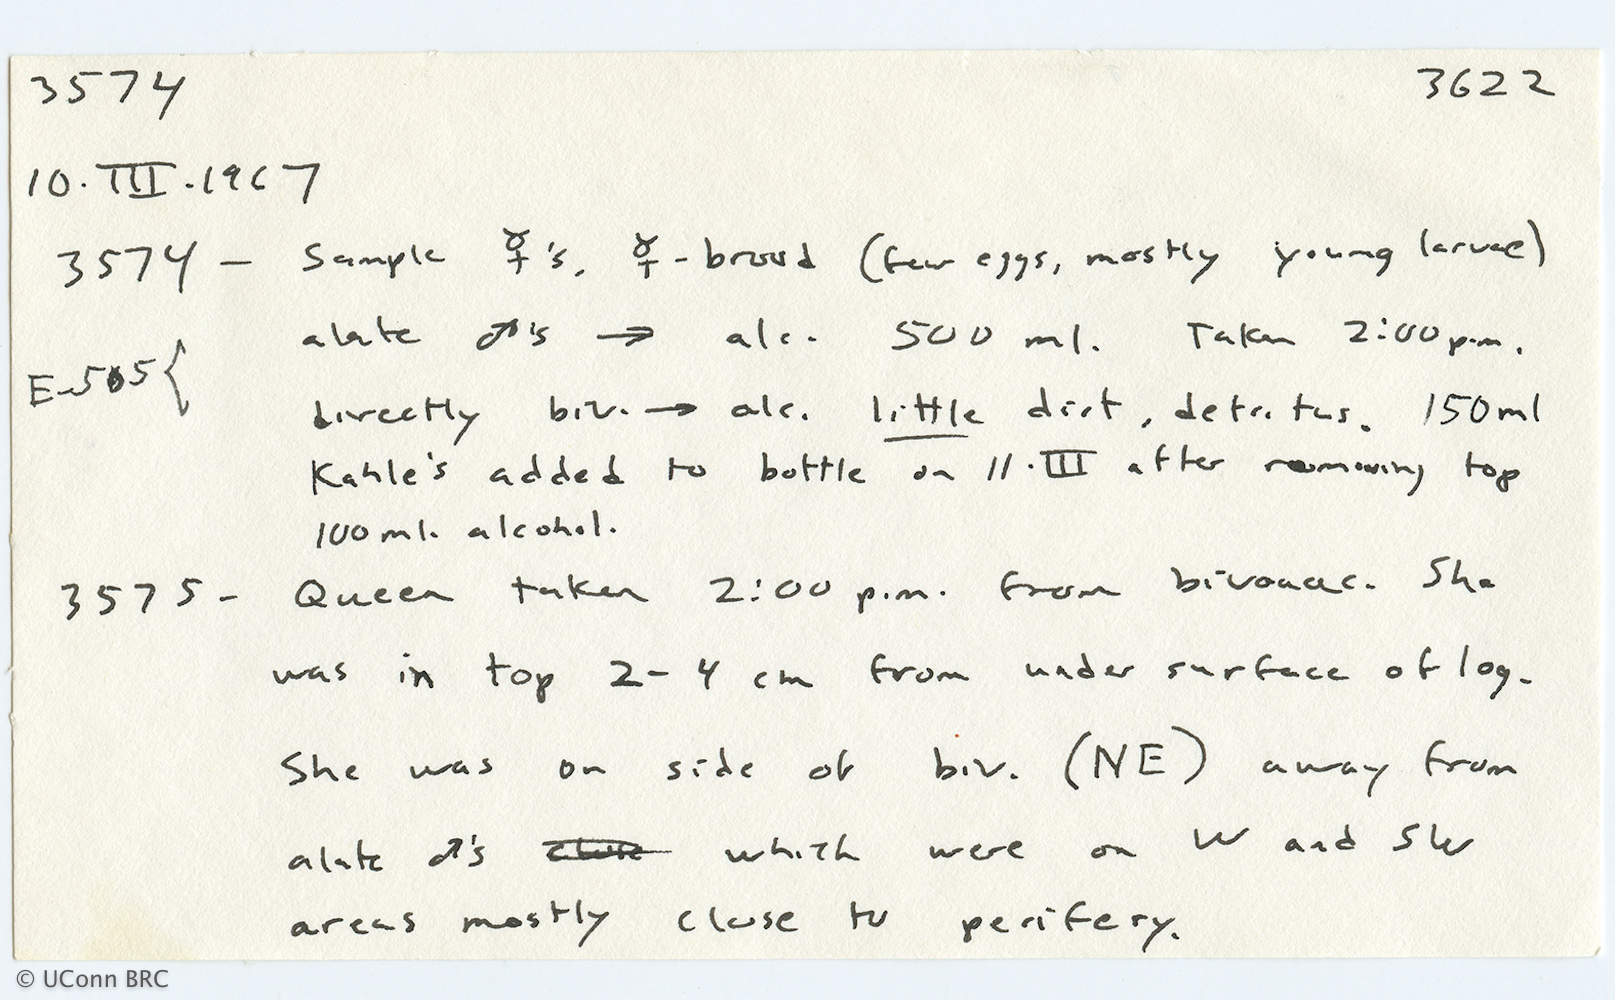 3574 3622
10.III.1967
3574 - Sample ☿'s, ☿-brood (few eggs, mostly young larvae)
alate ♂'s → alc. 500 ml. Taken 2:00 p.m.
E-505 {
directly biv. → alc. little dirt, detritus. 150 ml
Kahle's added to bottle on 11.III after removing top
100 ml. alcohol.
3575 - Queen taken 2:00 p.m. from bivouac. She
was in top 2-4 cm from under surface of log.
She was on side of biv. (NE) away from
alate ♂'s which were on W and SW
areas mostly close to perifery.
© UConn BRC